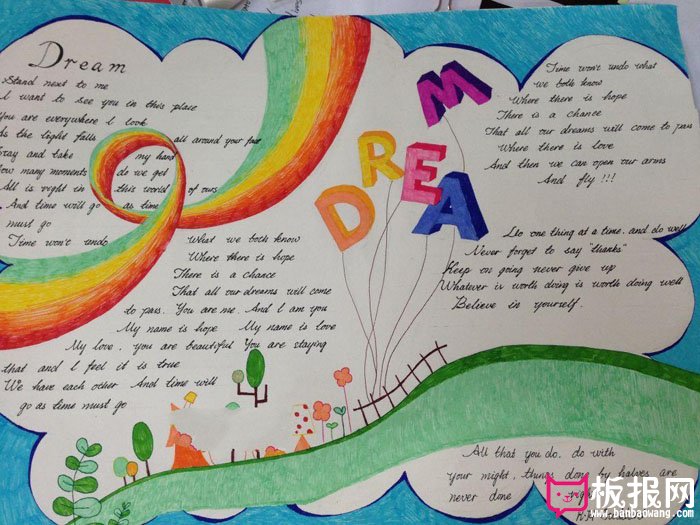 Dream
Stand next to me
I want to see you in this place
You are everywhere I look
As the light falls all around your face
Pray and take my hand
How many moments do we get
All is reght in this world of ours
And time will go as time
must go
Time won't undo What we both know
Where there is hope
There is a chance
That all our dreams will come
to pass. You are me. And I am you
My name is hope My name is love
My love, you are beautiful You are staying
that and I feel it is true
We have each other And time will
go as time must go
DREAM
Time won't undo what
we both know
Where there is hope
There is a chance
That all our dreams will come to pass
Where there is love
And then we can open our arms
And fly!!!
Do one thing at a time. and do well
Never forget to say "thanks"
Keep on going never give up
Whatever is worth doing is worth doing well
Believe in yourself.
All that you do. do with
your might, things done by halves are
never done right
板报网
www.banbaowang.com